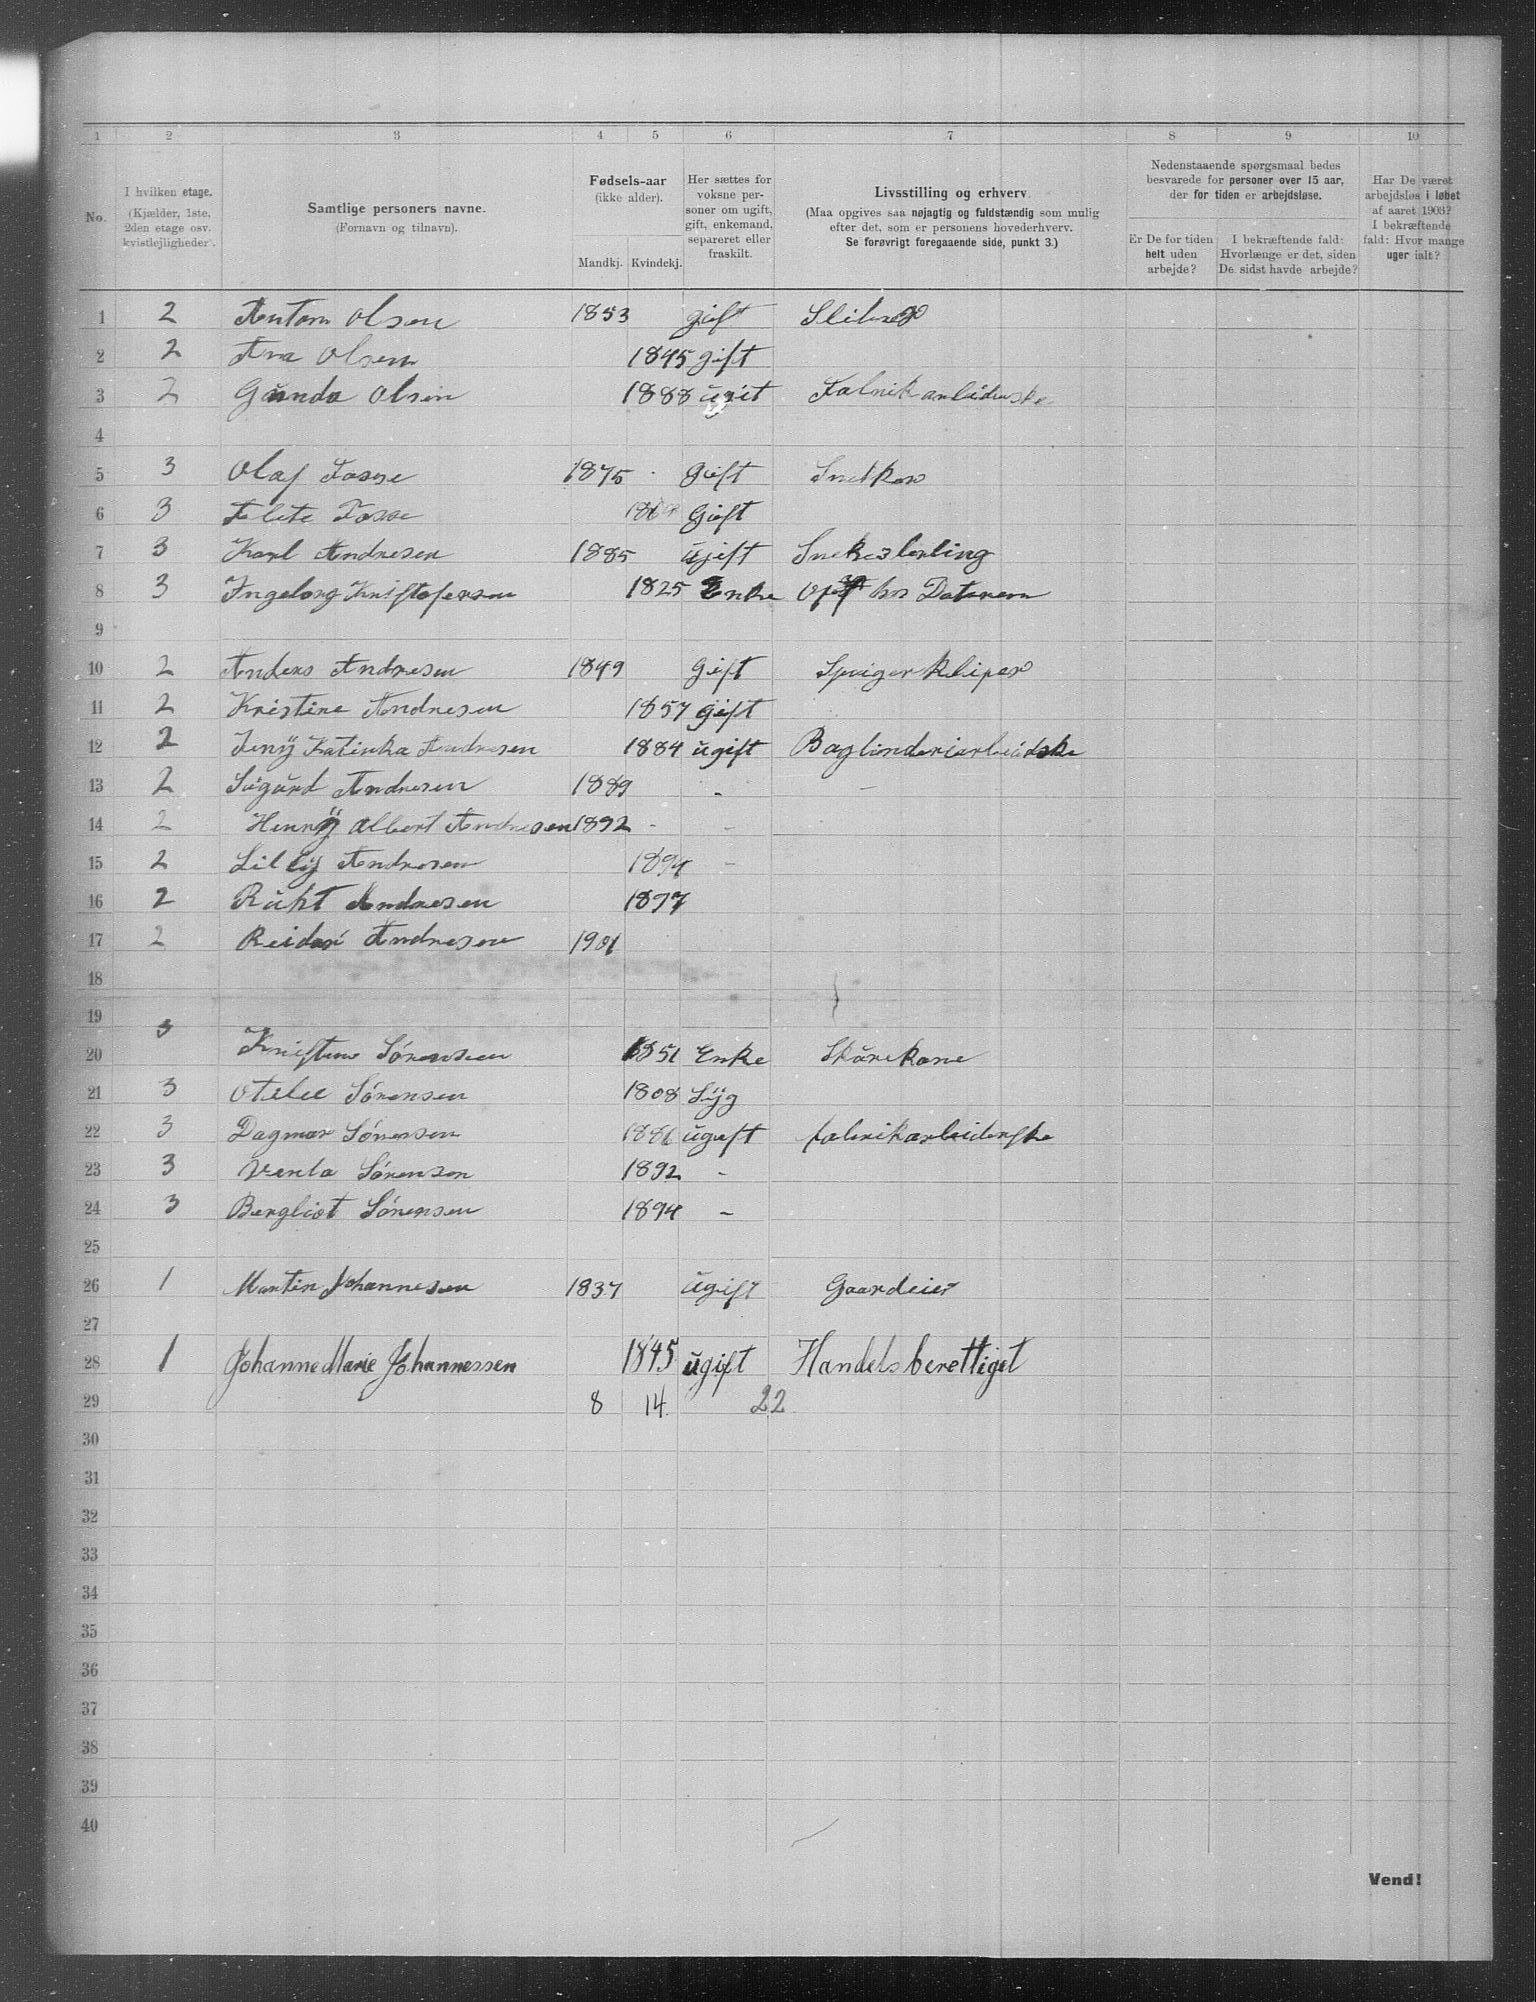 1 2 3 4 5 6 7 8 9 10
No.
I hvilken etage. (Kjælder, 1ste, 2den etage osv. kvistlejligheder).
Samtlige personers navne. (Fornavn og tilnavn).
Fødsels-aar (ikke alder). Mandkj. Kvindekj.
Her sættes for voksne personer om ugift, gift, enkemand, separeret eller fraskilt.
Livsstilling og erhverv. (Maa opgives saa nøjagtig og fuldstændig som mulig efter det, som er personens hovederhverv. Se forøvrigt foregaaende side, punkt 3.)
Nedenstaaende spørgsmaal bedes besvarede for personer over 15 aar, der for tiden er arbejdsløse.
Er De for tiden helt uden arbejde?
I bekræftende fald: Hvorlænge er det, siden De sidst havde arbejde?
Har De været arbejdsløs i løbet af aaret 1903? I bekræftende fald: Hvor mange uger ialt?
1 2 Antom Olsen 1853 gift Sliber
2 2 Ana Olsen 1845 gift
3 2 Gunda Olsen 1888 ugit Fabrikarbiderske
4
5 3 Olaf Fosse 1875 Gift Snetker
6 3 Fosse Gift
7 3 Karl Andresen 1885 ugift Snekerlerling
8 3 Ingeborg Kristofersen 1825 Enke hos Dateren
9
10 2 Anders Andresen 1849 Gift Spigerkliper
11 2 Kristine Andresen 1857 gift
12 2 Jeny Katinka Andresen 1884 ugift Bagbinderiarbeidske
13 2 Sigurd Andresen 1889 - -
14 2 Henry Albert Andresen 1892 - -
15 2 Lilly Andresen 1894 -
16 2 Ruht Andresen 1897
17 2 Reidar Andresen 1901
18
19
20 3 Kristine Sørensen 1851 Enke Skurekone
21 3 Otelie Sørensen 1808 Syg
22 3 Dagmar Sørensen 1886 ugift fabrikarbeiderske
23 3 Venla Sørensen 1892 -
24 3 Bergliot Sørensen 1894 -
25
26 1 Martin Johannesen 1837 ugift Gaardeier
27
28 1 Johanne Marie Johannessen 1845 ugift Handelsberettiget
29 8 14 22
30
31
32
33
34
35
36
37
38
39
40
Vend!